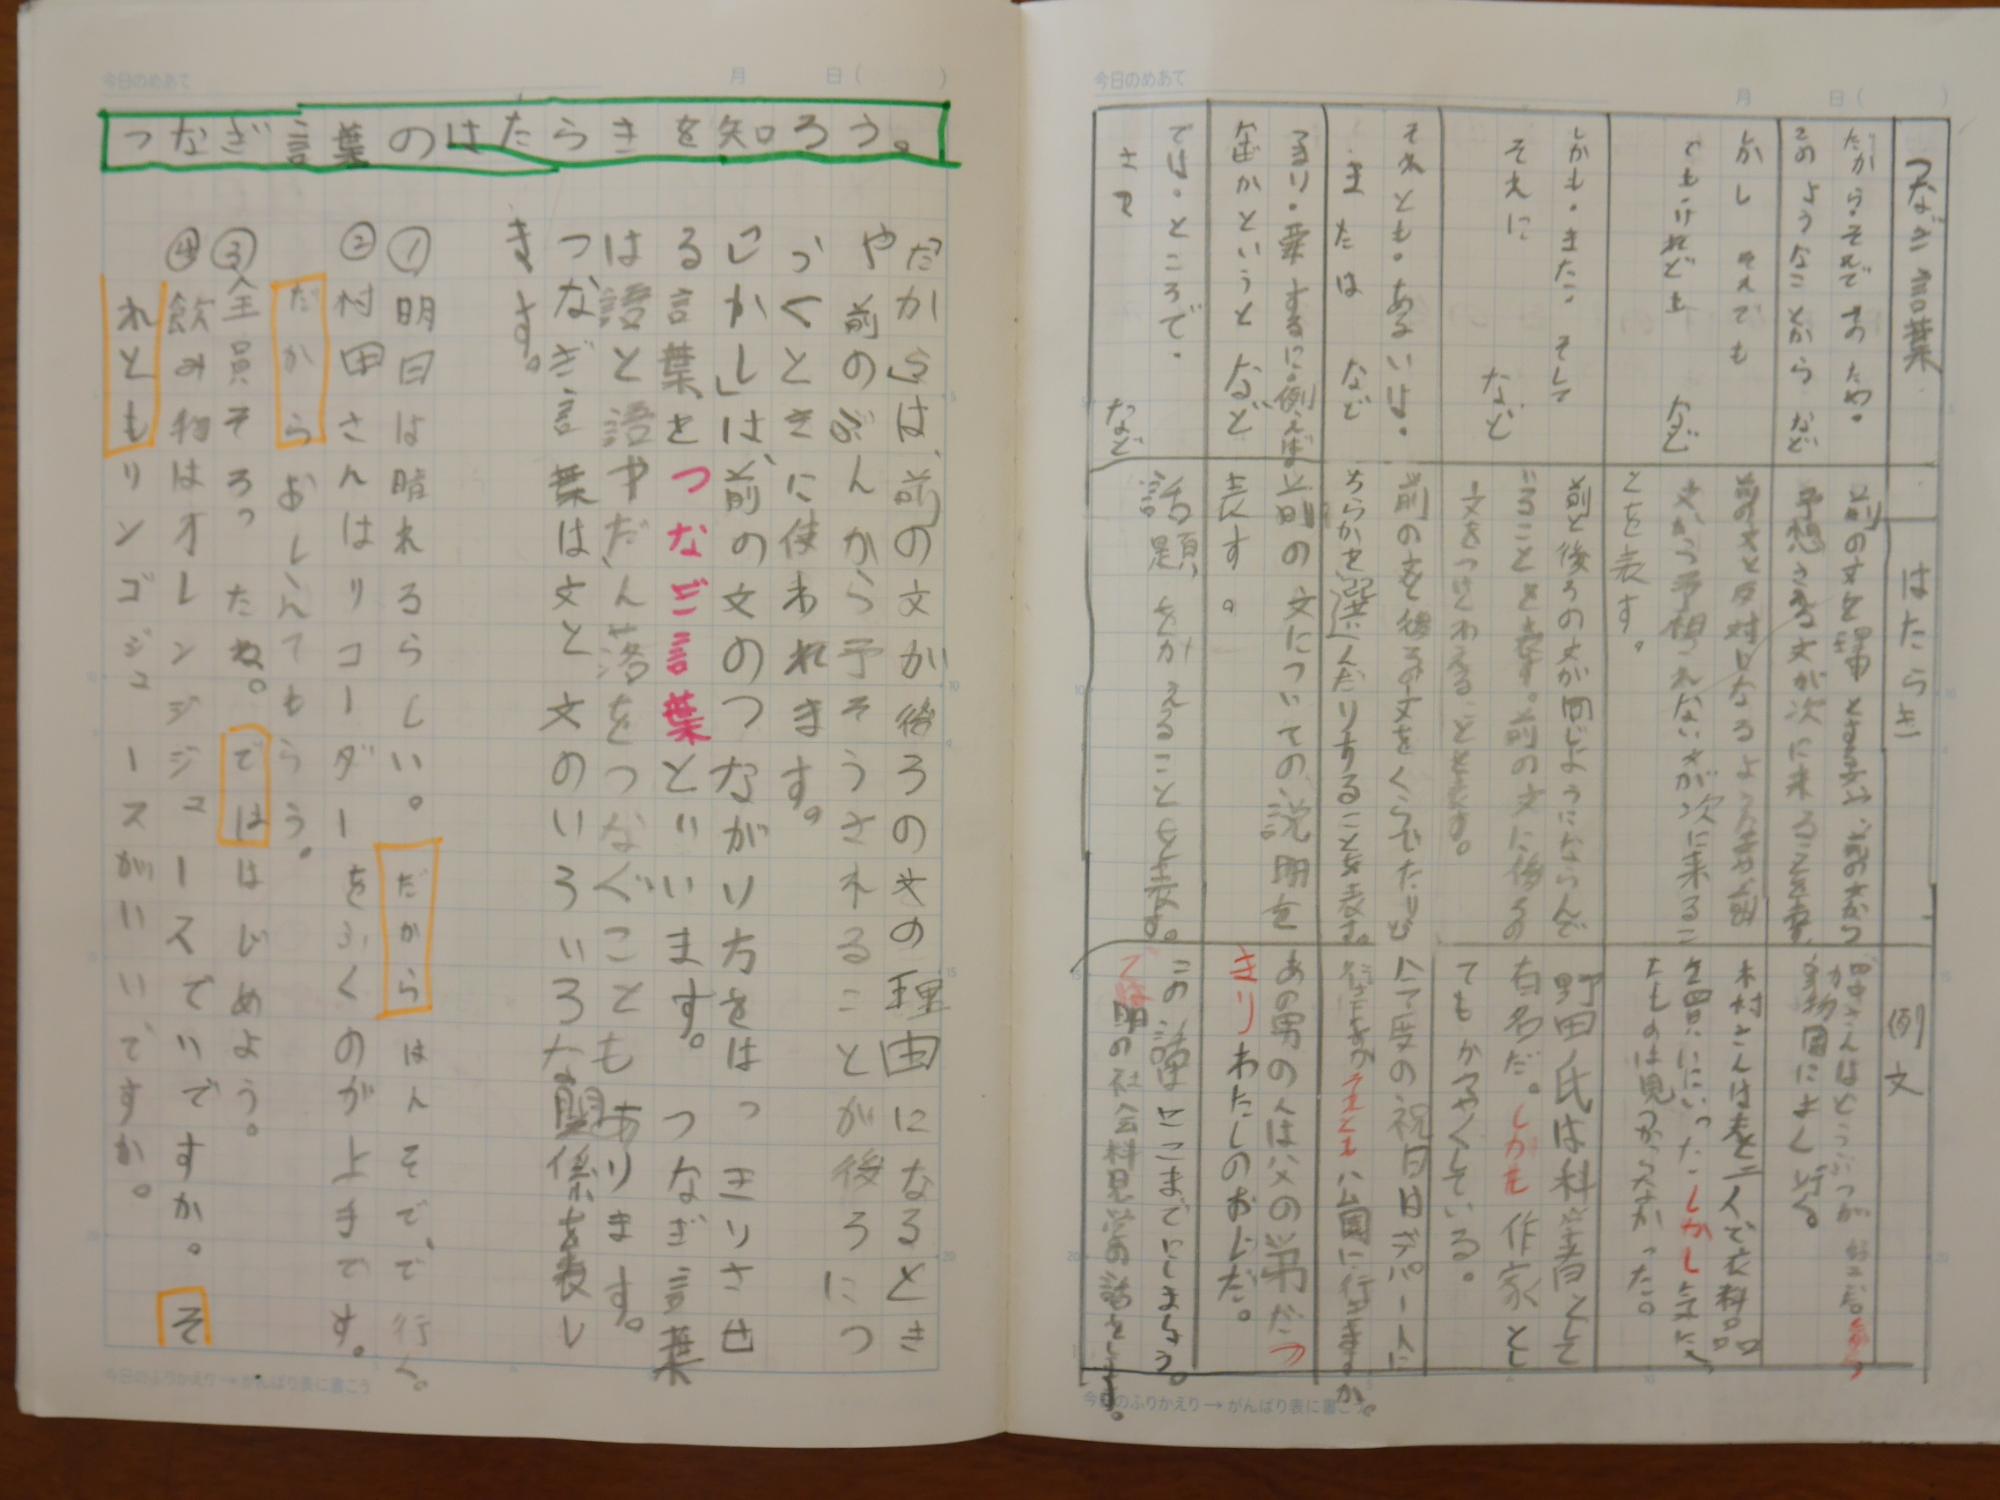 今日のめあて
月 日（ ）
つなぎ言葉
だから・それで そのため・
このようなことから など
しかし それでも
でも・けれども など
しかも・また・そして
それに など
それとも・あるいは・
または など
つまり・要するに・例えば
なぜかというと など
では・ところで・
さて など
はたらき
予想される文が次に来ることを表す
とを表す。
前と後ろの文が同じようにならんで
いることを表す。前の文に後ろの
文をつけくわえることを表す。
前の文を後ろの文をくらべたりど
ちらかを選んだりすることを表す。
前の文についての説明を
表す。
話題をかえることを表す。
例文
動物園によく行く。
木村さんは妻と二人で衣料品
を買いにいった しかし気に入っ
たものは見つからなかった。
野田氏は科学者として
有名だ。しかも 作家とし
てもかつやくしている。
あの男の人は父の弟だ つ
まり わたしのおじだ。
この話はここまでにしましょう。
では明の社会科見学の話をします。
今日のふりかえり→がんばり表に書こう
今日のめあて
月 日（ ）
つなぎ言葉のはたらきを知ろう。
「だから」は、前の文が後ろの文の理由になるとき
や前のぶんから予そうされることが後ろにつ
づくときに使われます。
「しかし」は、前の文のつながり方をはっきりさせ
る言葉をつなぎ言葉といいます。つなぎ言葉
は語と語やだん落をつなぐこともあります。
つなぎ言葉は文と文のいろいろな関係を表し
ます。
①明日は晴れるらしい。だからはんそでで行く。
②村田さんはリコーダーをふくのが上手です。
だからおしえてもらう。
③全員そろったね。でははじめよう。
④飲み物はオレンジジュースでいいですか。そ
れともリンゴジュースがいいですか。
今日のふりかえり→がんばり表に書こう